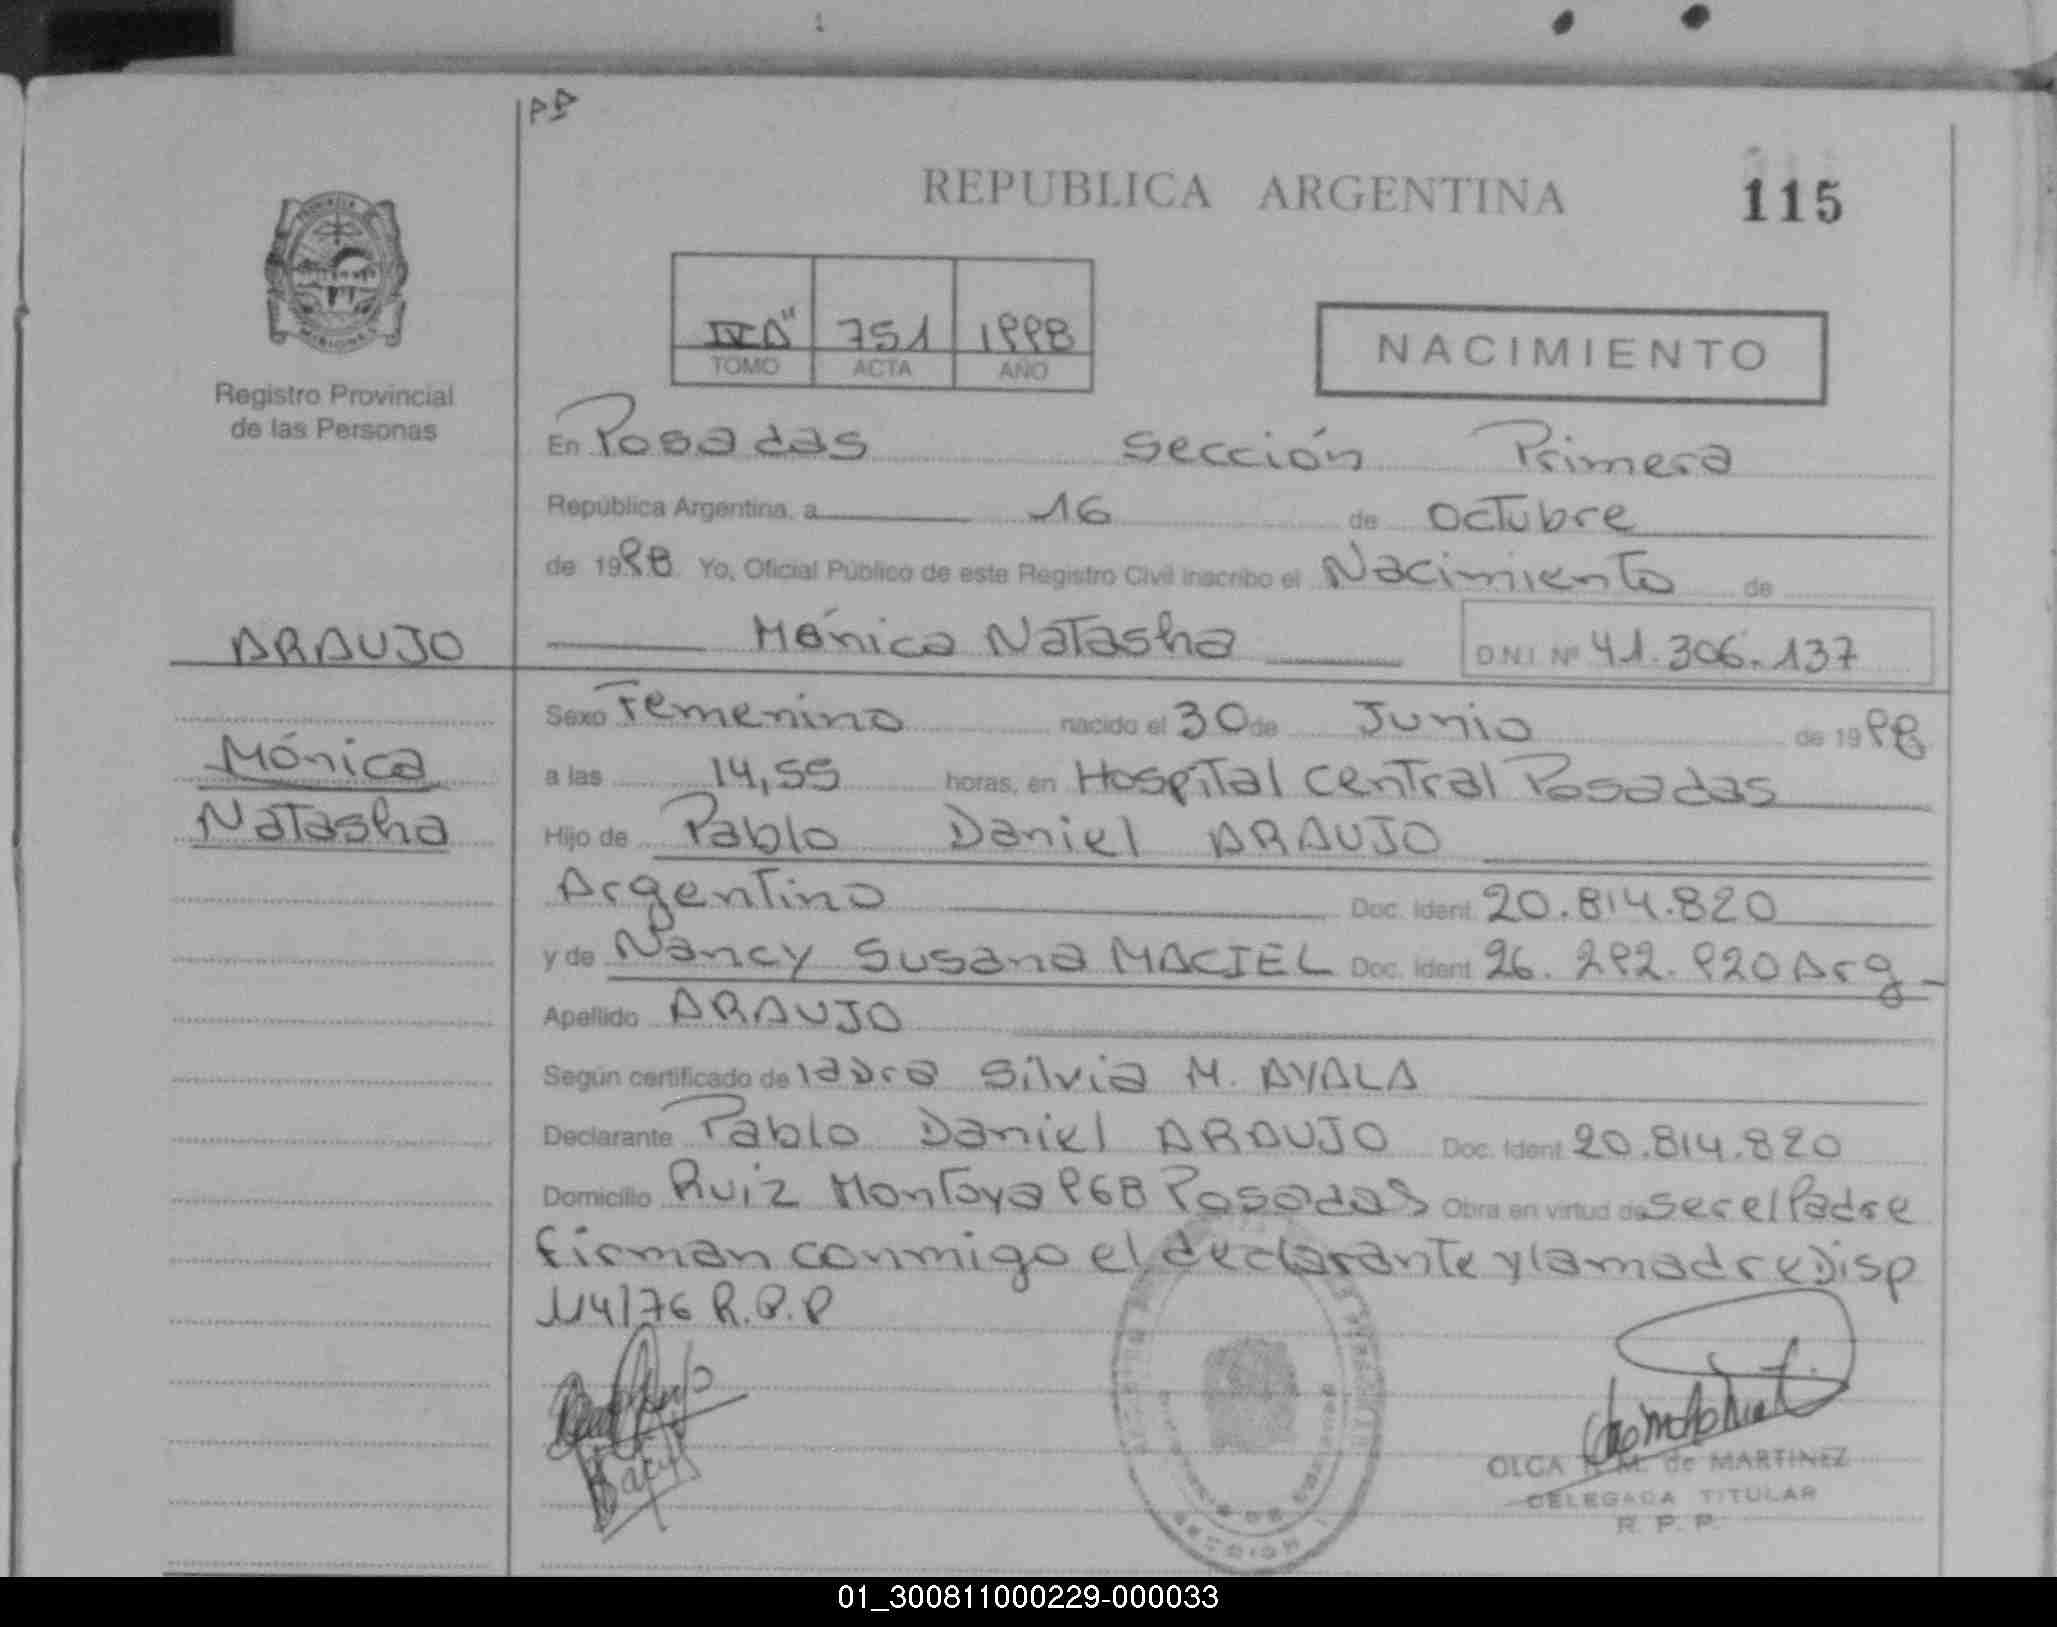 REPUBLICA ARGENTINA
115
IV "A" 751 1998
TOMO ACTA AÑO
NACIMIENTO
Registro Provincial
de las Personas
En Posadas sección Primera
República Argentina, a 16 de octubre
de 1998 Yo, Oficial Público de este Registro Civil inscribo el Nacimiento de
ARAUJO
Mónica Natasha D.N.I. Nº 41.306.137
Sexo Femenino nacido el 30 de Junio de 1998
Mónica
a las 14,55 horas, en Hospital Central Posadas
Natasha
Hijo de Pablo Daniel ARAUJO
Argentino Doc. Ident. 20.814.820
y de Nancy Susana MACIEL Doc. Ident. 26.292.920 Arg
Apellido ARAUJO
Según certificado de Silvia M. AYALA
Declarante Pablo Daniel ARAUJO Doc. Ident. 20.814.820
Domicilio Ruiz Montoya 968 Posadas Obra en virtud de ser el Padre
firman conmigo el declarante y la madre Disp
114/76 R.P.P
OLGA M. de MARTINEZ
DELEGADA TITULAR
R. P. P.
SECCION 1
01_300811000229-000033